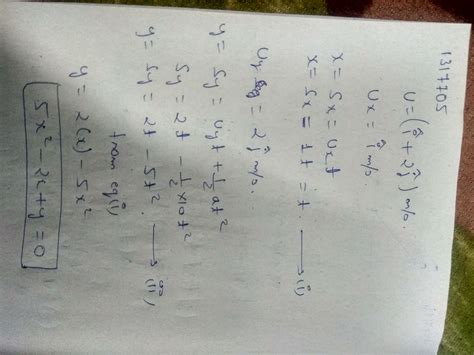 1317705
U = (î + 2ĵ) m/s.
Ux = î m/s
x = Sx = Ux t
x = Sx = 1t = t ⟶ (i)
Uy = 2ĵ m/s.
y = Sy = Uyt + 1/2 at²
Sy = 2t - 1/2 × 10t²
y = Sy = 2t - 5t² ⟶ (ii)
from eq (i)
y = 2(x) - 5x²
5x² - 2x + y = 0